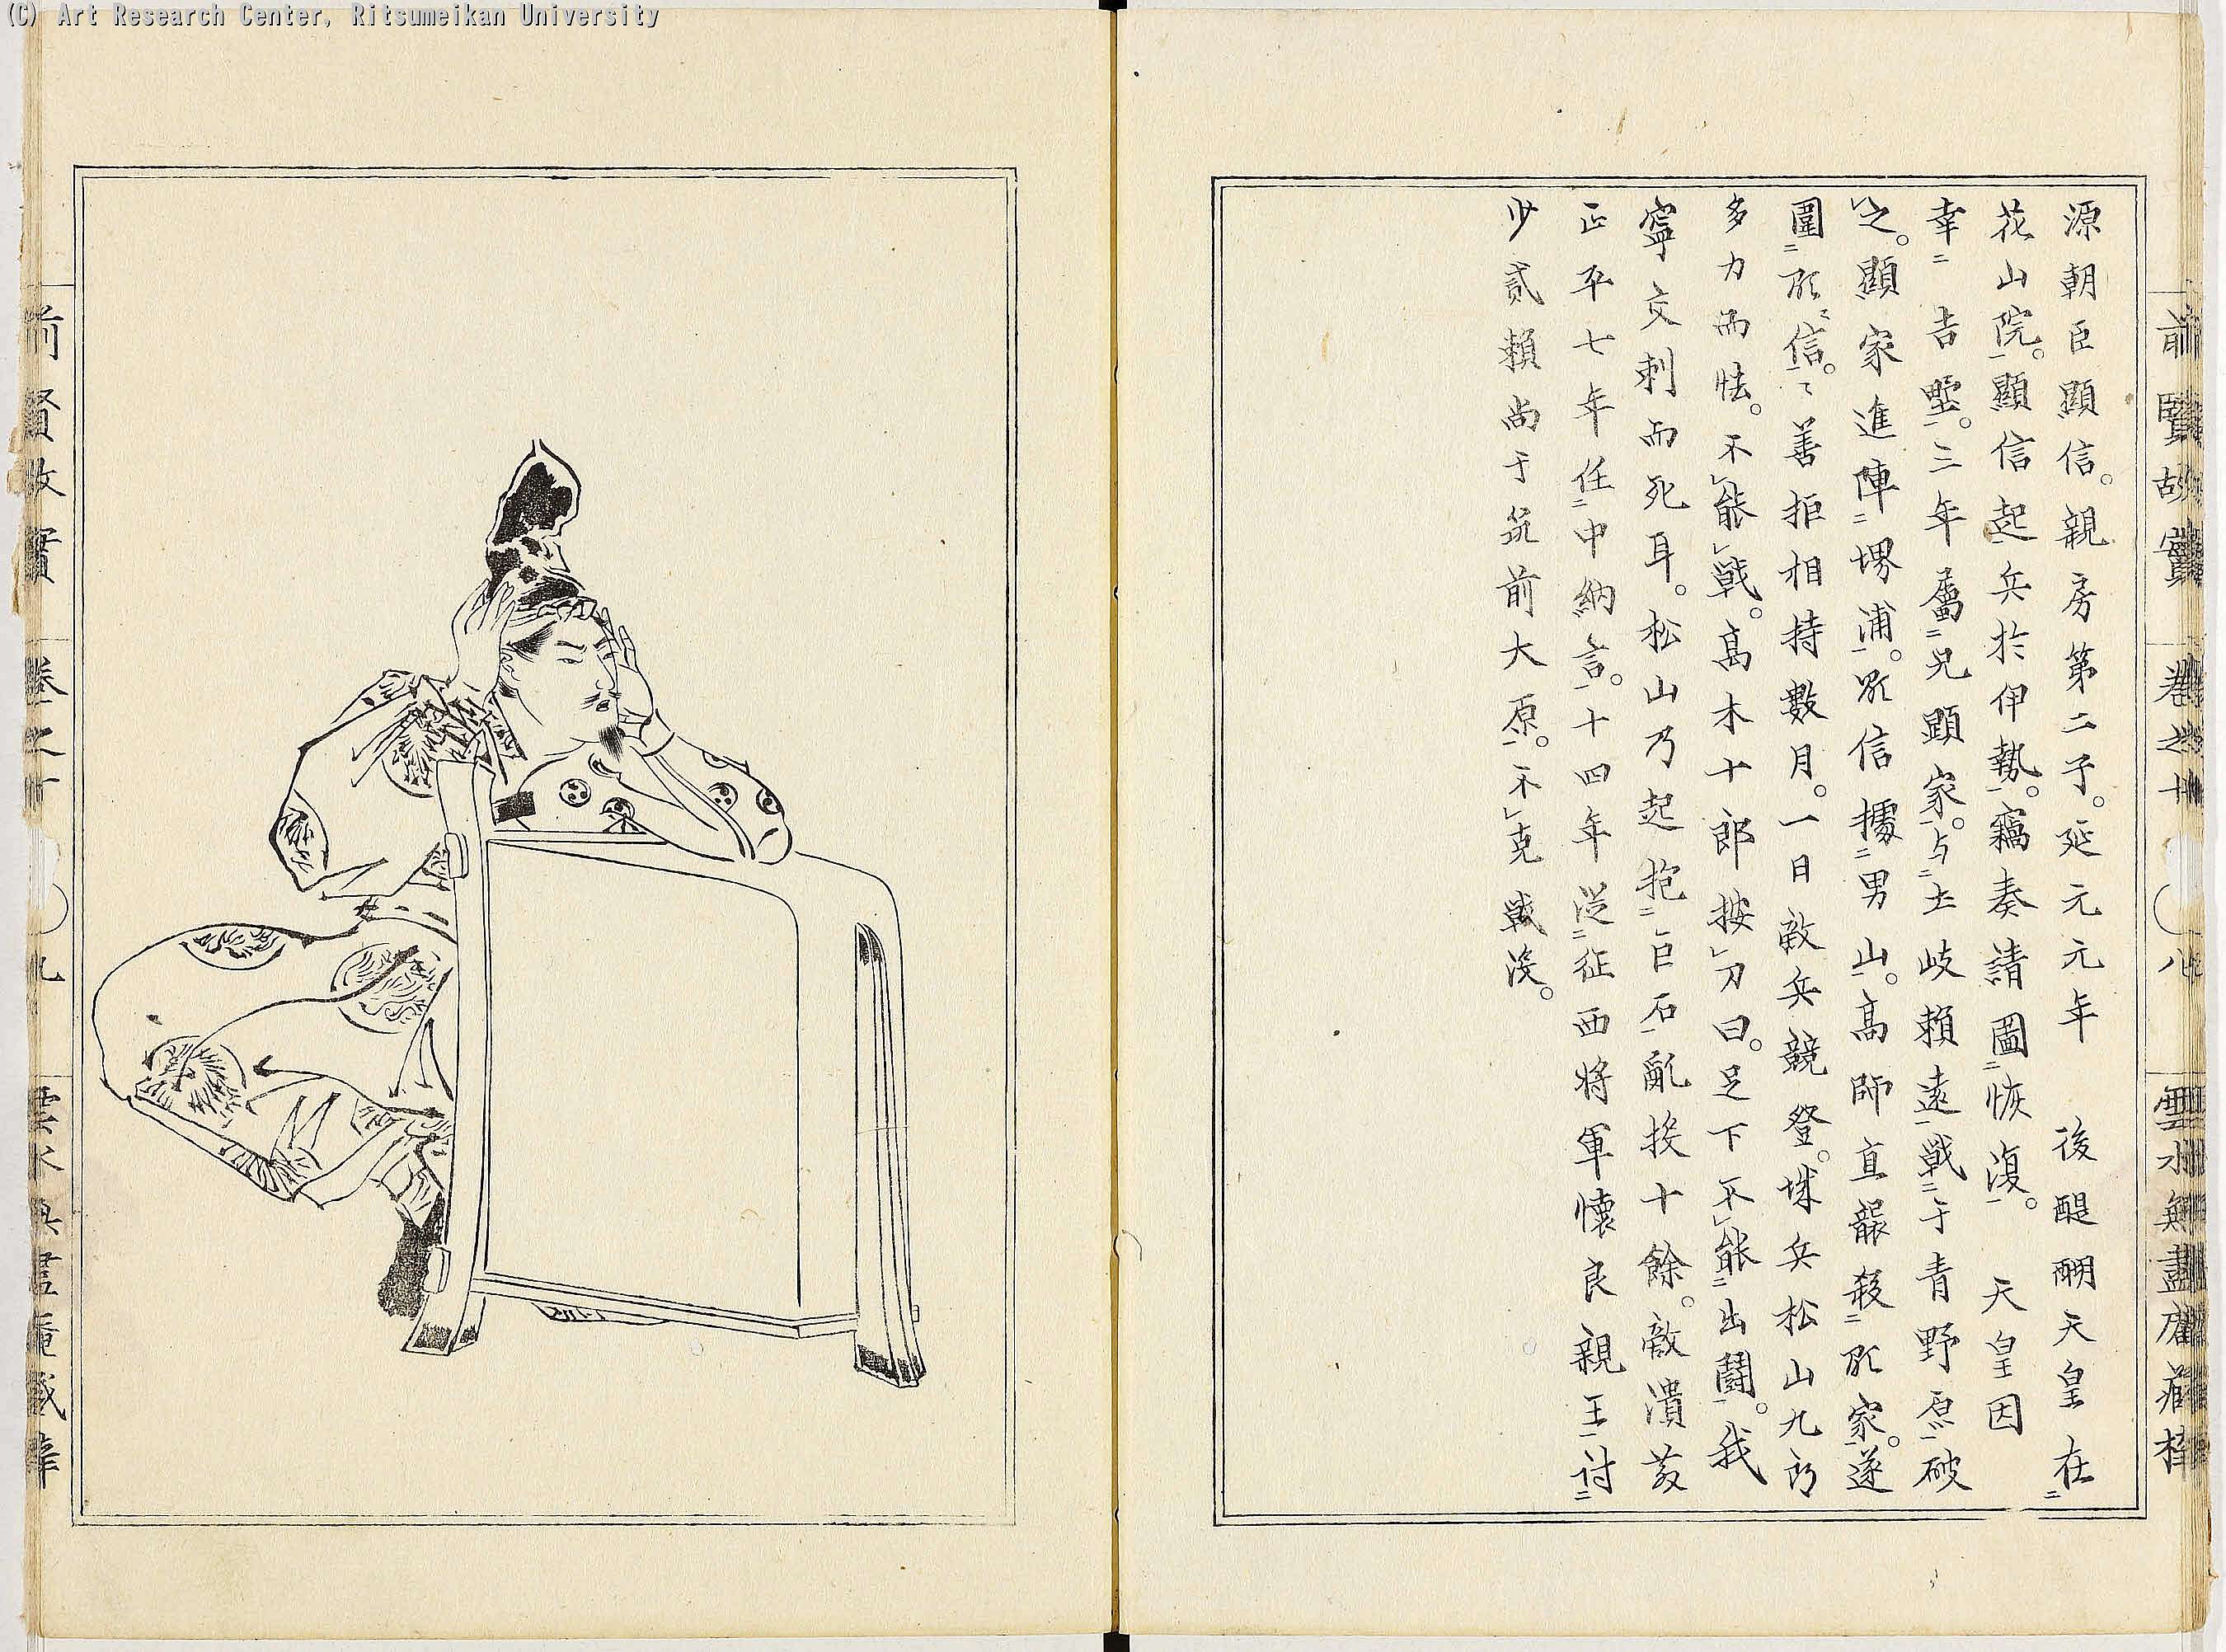 (C) Art Research Center, Ritsumeikan University
前賢故實 卷之十 八 雲水無盡庵藏梓
源朝臣顯信。親房第二子。延元元年 後醍醐天皇在二
花山院一。顯信起兵於伊勢一。竊奏請圖二恢復一。 天皇因
幸二 吉野一。三年屬二兄顕家一。与二土岐頼遠一戦二于青野原一破
之。顯家進陣二堺浦一。顕信據二男山一。高師直襲殺二顕家一。遂
圍二顕信一。ミ善拒相持數月。一日敵兵競登。城兵松山九郎
多力而怯。不レ能レ戦。高木十郎按レ刀曰。足下不レ能二出鬪一。我
寧交刺而死耳。松山乃起抱二巨石一亂投十餘。敵潰〻
正平七年任二中納言一。十四年從二征西将軍懐良親王一討二
少貳頼尚于筑前大原一。不レ克戦没。
前賢故實 卷之十 九 雲水無盡庵藏梓